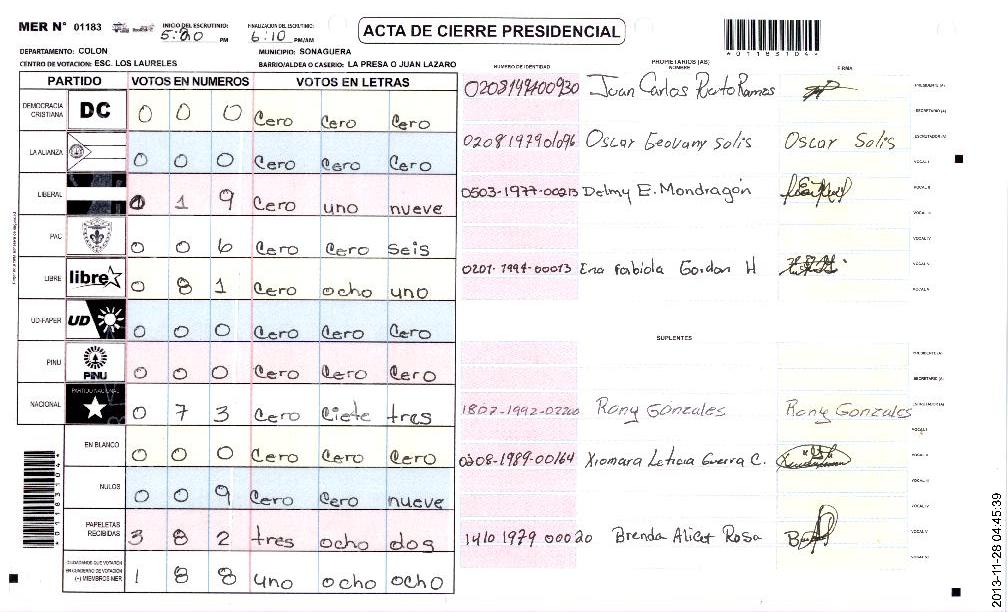 MER N° 01183 INICIO DEL ESCRUTINIO: 5:20 PM FINALIZACION DEL ESCRUTINIO: 6:10 PM/AM
ACTA DE CIERRE PRESIDENCIAL
*01183104*
DEPARTAMENTO: COLON MUNICIPIO: SONAGUERA
CENTRO DE VOTACION: ESC. LOS LAURELES BARRIO/ALDEA O CASERIO: LA PRESA O JUAN LAZARO
PARTIDO VOTOS EN NUMEROS VOTOS EN LETRAS
NUMERO DE IDENTIDAD PROPIETARIOS (AS) NOMBRE FIRMA
DEMOCRACIA CRISTIANA DC 0 0 0 Cero Cero Cero
LA ALIANZA 0 0 0 Cero Cero Cero
LIBERAL 0 1 9 Cero uno nueve
PAC 0 0 6 Cero Cero seis
LIBRE libre 0 8 1 Cero ocho uno
UD-FAPER UD 0 0 0 Cero Cero Cero
PINU PINU 0 0 0 Cero Cero Cero
NACIONAL PARTIDO NACIONAL 0 7 3 Cero Ciete tres
EN BLANCO 0 0 0 Cero Cero Cero
NULOS 0 0 9 Cero Cero nueve
PAPELETAS RECIBIDAS 3 8 2 tres ocho dos
CIUDADANOS QUE VOTARON EN CUADERNO DE VOTACION (+) MIEMBROS MER 1 8 8 uno ocho ocho
Juan Carlos Ramos PRESIDENTE (A)
SECRETARIO (A)
Oscar Geovany Solis Oscar Solis ESCRUTADOR (A)
VOCAL I
0503-1977-00213 Delmy E. Mondragón VOCAL II
VOCAL III
VOCAL IV
0201-1994-00073 Ena Fabiola Gordon H VOCAL V
SUPLENTES
PRESIDENTE (A)
SECRETARIO (A)
1807-1992-02200 Rony Gonzales Rony Gonzales ESCRUTADOR (A)
VOCAL I
0208-1989-00164 Xiomara Leticia Guerra C. VOCAL II
VOCAL III
VOCAL IV
1410 1979 00020 Brenda Alicet Rosa VOCAL V
*01183104*
2013-11-28 04:45:39